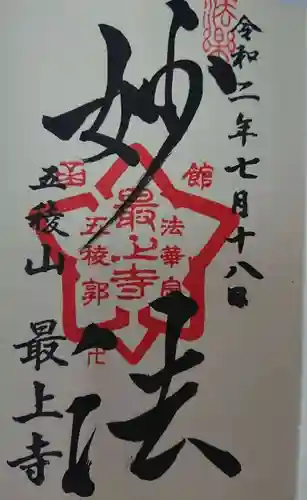 令和二年七月十八日
妙法
五稜山 最上寺
函館
法華宗
最上寺
五稜郭
卍